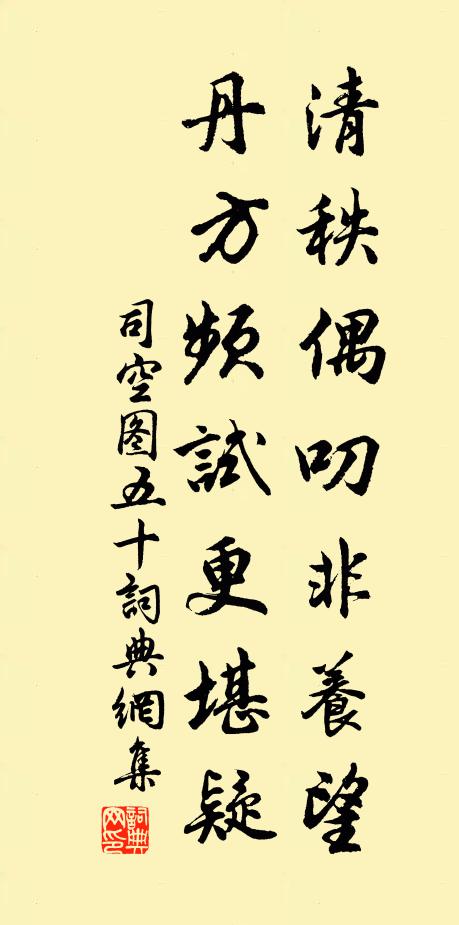 清秩偶叨非養望
丹方頻試更堪疑
司空圖五十詞典網集
詞典網印